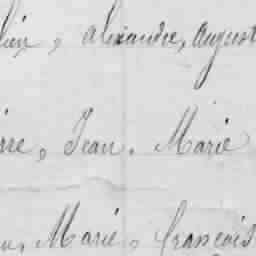 lien, alexandre, august
rre, Jean, Marie
n, Marie, françois